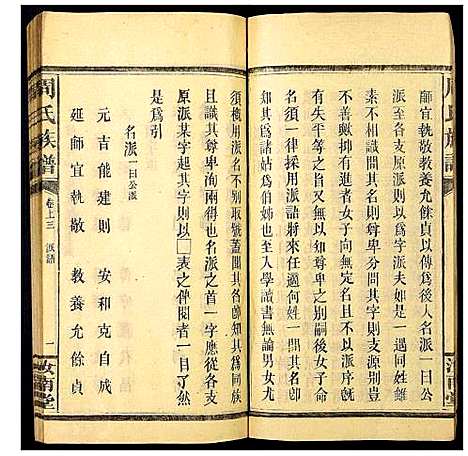 周氏族譜
師宜執敬教養允餘貞以傳爲後人名派一曰公
派至各支原派則以其字以爲字派夫如是一遇同姓雖
素不相識問其名則尊卑分問其字則
不善歟抑有進者女子向不以派序旣
有失平等之旨且如尊卑之別嗣後女子命
名須一律採用派語將來任適何姓一問
知其爲諸姑爲伯姊也至入學讀書無論男女
須槪用派名不別取號蓋聞其名爲同族
且識其尊卑洵兩得也名派之首一字應從各支
原派某字則以□表之俾閱者一目了然
是爲引
名派一曰公派
元吉能建則 安和克自成
延師宜執敬 教養允餘貞
周氏族譜
卷上三 派語
一
汝南堂